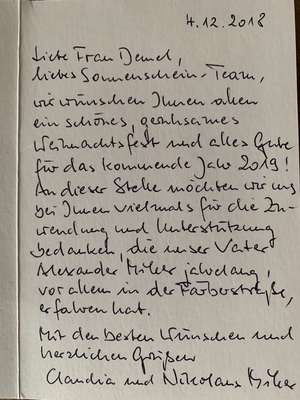 4.12.2018
Liebe Frau Demel,
liebes Sonnenschein-Team,
wir wünschen Ihnen allen
ein schönes, geruhsames
Weihnachtsfest und alles Gute
für das kommende Jahr 2019!
An dieser Stelle möchten wir uns
bei Ihnen vielmals für die Zu-
wendung und Unterstützung
bedanken, die unser Vater
Alexander jahrelang,
vor allem in der Färberstraße,
erfahren hat.
Mit den besten Wünschen und
herzlichen Grüßen
Claudia und Nikolaus